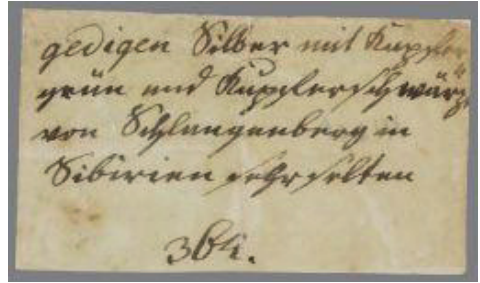 gedigen Silber mit Kupfer
grün und Kupferschwärze
von Schlangenberg in
Sibirien sehr selten